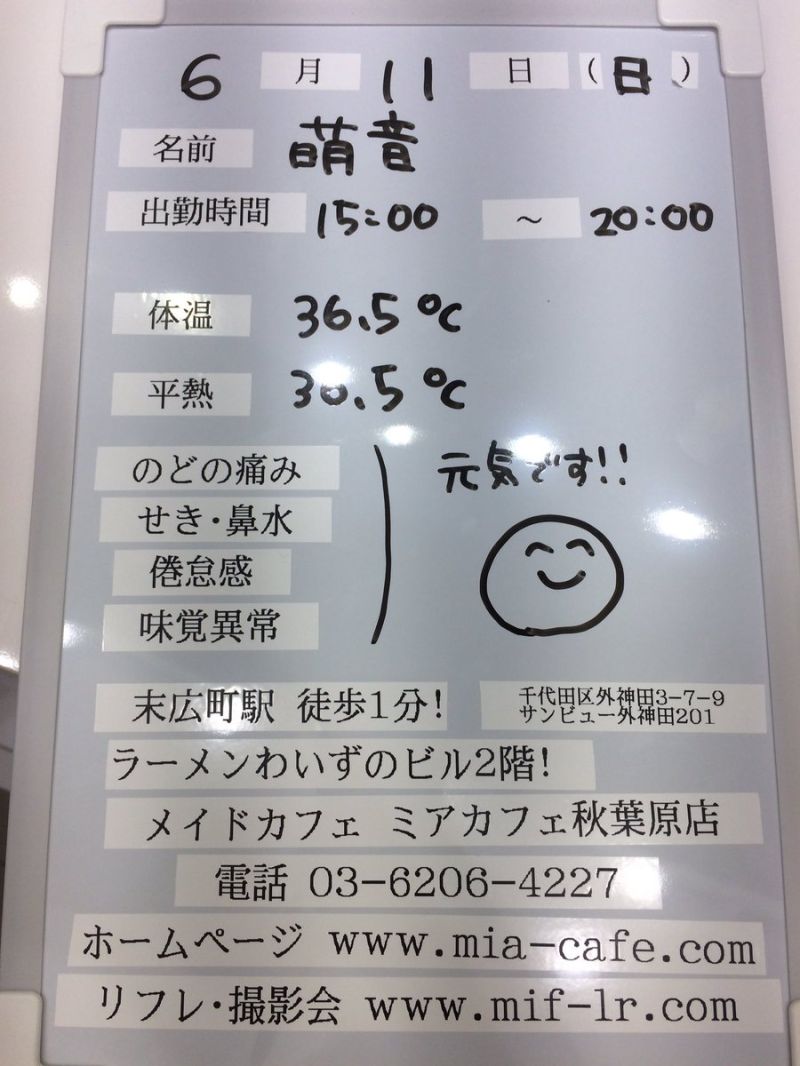 6月11日(日)
名前 萌音
出勤時間 15:00 ~ 20:00
体温 36.5℃
平熱 36.5℃
のどの痛み
元気です!!
せき・鼻水
倦怠感
味覚異常
末広町駅 徒歩1分!
千代田区外神田3-7-9
サンビュー外神田201
ラーメンわいずのビル2階!
メイドカフェ ミアカフェ秋葉原店
電話 03-6206-4227
ホームページ www.mia-cafe.com
リフレ・撮影会 www.mif-lr.com